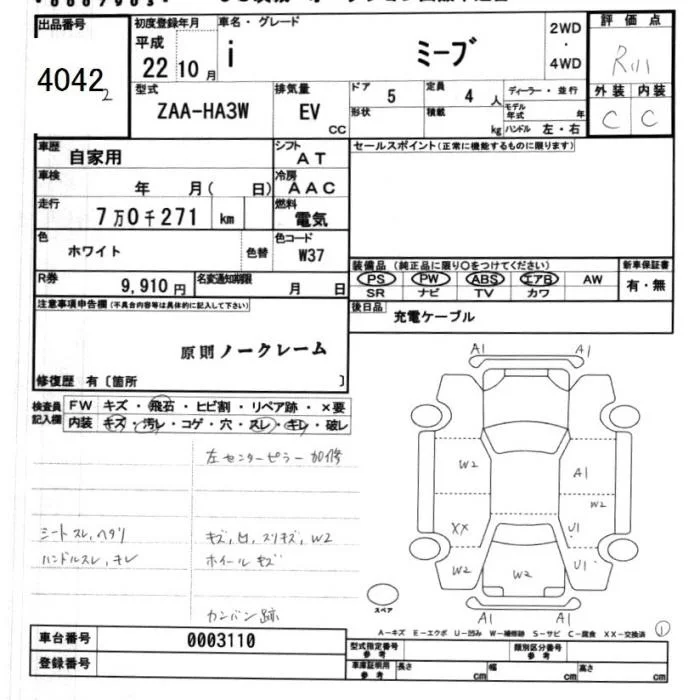 出品番号 初度登録年月 車名・グレード 2WD 評価点
4042 2 平成 i ミーブ ・ R川
22 10月 4WD
型式 排気量 ドア 定員 ディーラー・並行 外装 内装
ZAA-HA3W EV 5 4人 モデル年式 年 C C
CC 形状 積載 kg ハンドル 左・右
車歴 自家用 シフト AT セールスポイント(正常に機能するものに限ります)
車検 年 月( 日) 冷房 AAC
走行 7万0千271 km 燃料 電気
色 ホワイト 色替 色コード W37
装備品(純正品に限り○をつけてください) 新車保証書
R券 9,910円 名変通知期限 月 日 PS PW ABS エアB AW 有・無
SR ナビ TV カワ
注意事項申告欄(不具合内容等は具体的に記入して下さい) 後日品 充電ケーブル
原則ノークレーム
修復歴 有〔箇所 〕
検査員記入欄 FW キズ・飛石・ヒビ割・リペア跡・×要
内装 キズ・汚レ・コゲ・穴・スレ・キレ・破レ
左センターピラー加修
シートスレ,ヘタリ キズ,凹,スリキズ,W2
ハンドルスレ,キレ ホイールキズ
カンバン跡
A1 A1
W2 A1
W2
XX U1
W2 W2 U1
スペア A1 A1
A-キズ E-エクボ U-凹み W-補修跡 S-サビ C-腐食 XX-交換済 ①
車台番号 0003110 型式指定番号 参考 類別区分番号 参考
登録番号 車庫証明用 参考 長さ cm 幅 cm 高さ cm